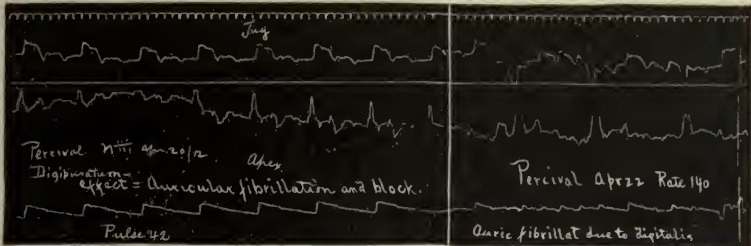 Jug
Percival Apr. 20/12
Apex
Digipuratum
effect = Auricular fibrillation and block.
Pulse 42
Percival Apr 22 Rate 140
Auric fibrillat due to digitalis